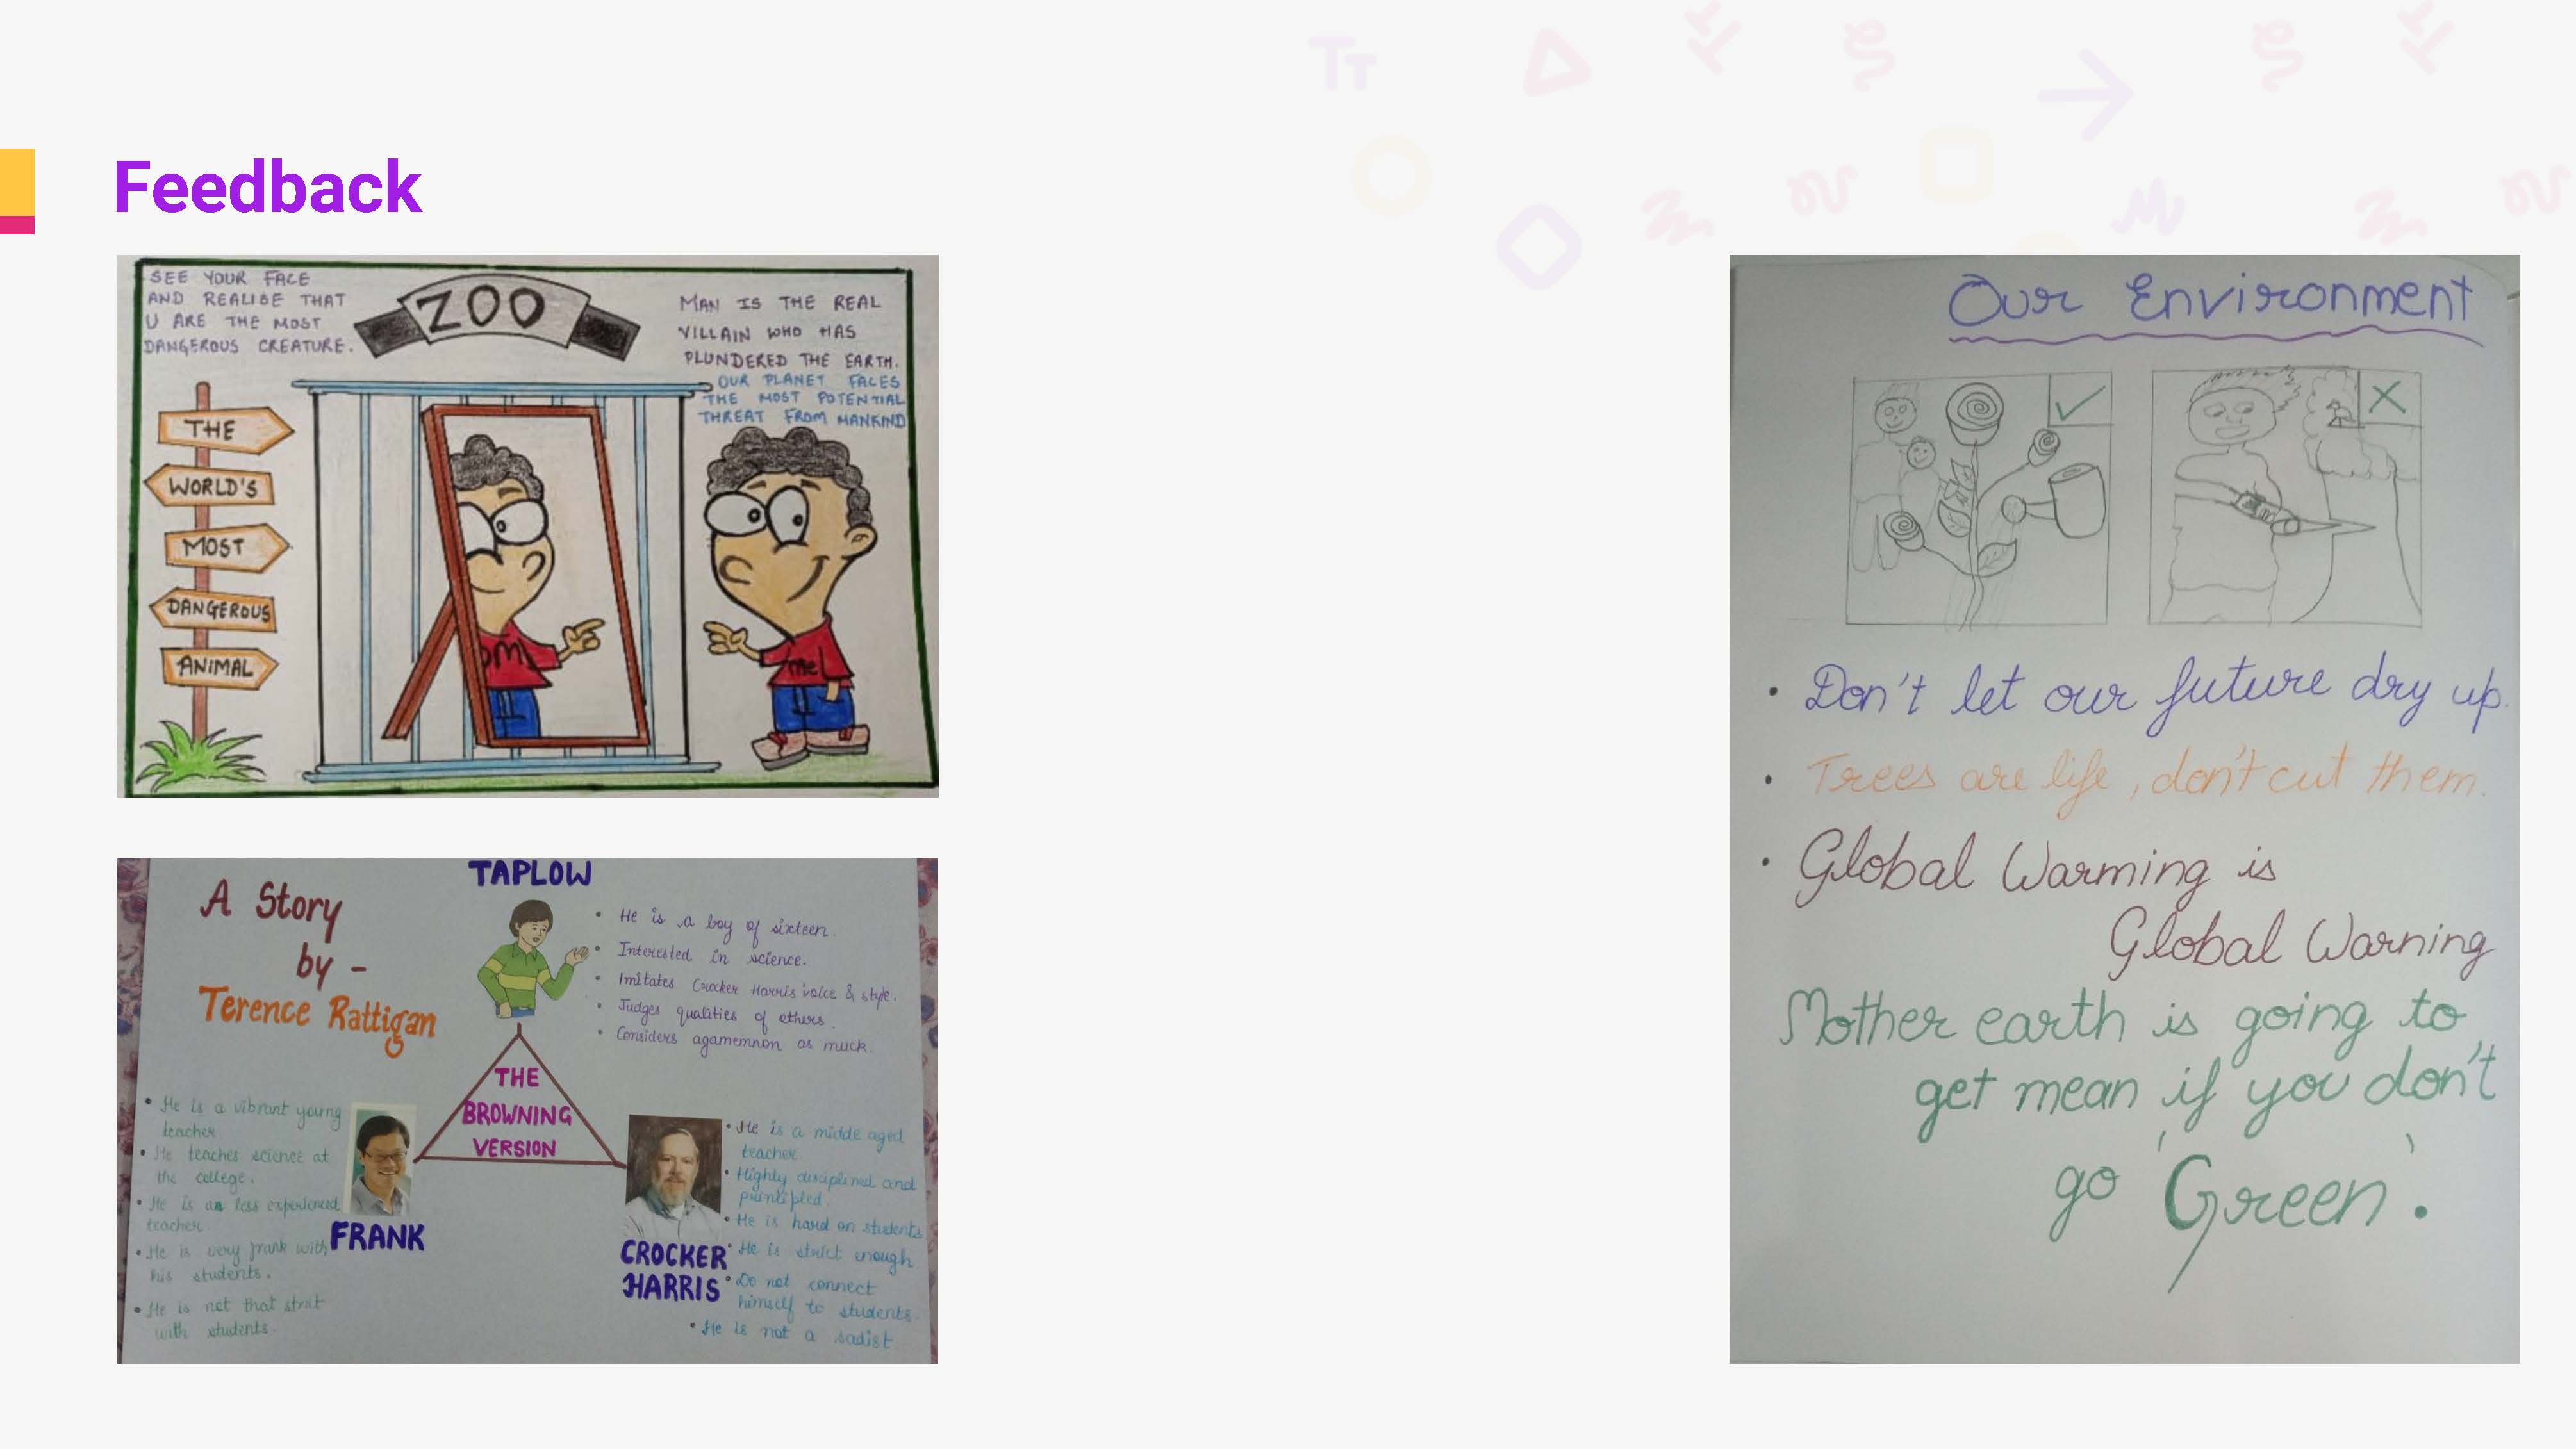 Feedback
SEE YOUR FACE
AND REALISE THAT
U ARE THE MOST
DANGEROUS CREATURE.
ZOO
MAN IS THE REAL
VILLAIN WHO HAS
PLUNDERED THE EARTH.
OUR PLANET FACES
THE MOST POTENTIAL
THREAT FROM MANKIND
THE
WORLD'S
MOST
DANGEROUS
ANIMAL
me
A Story
by -
Terence Rattigan
TAPLOW
• He is a boy of sixteen.
• Interested in science.
• Imitates Crocker Harris' voice & style.
• Judges qualities of others.
• Considers agamemnon as muck.
THE
BROWNING
VERSION
• He is a vibrant young
teacher
• He teaches science at
the college.
• He is an less experienced
teacher.
• He is very frank with
his students.
• He is not that strit
with students.
FRANK
CROCKER
HARRIS
• He is a midde aged
teacher.
• Highly disciplined and
principled.
• He is hard on students
• He is strict enough
• Do not connect
himself to students.
• He is not a sadist
Our Environment
• Don't let our future dry up.
• Trees are life, don't cut them.
• Global Warming is
Global Warning
Mother earth is going to
get mean if you don't
go 'Green'.